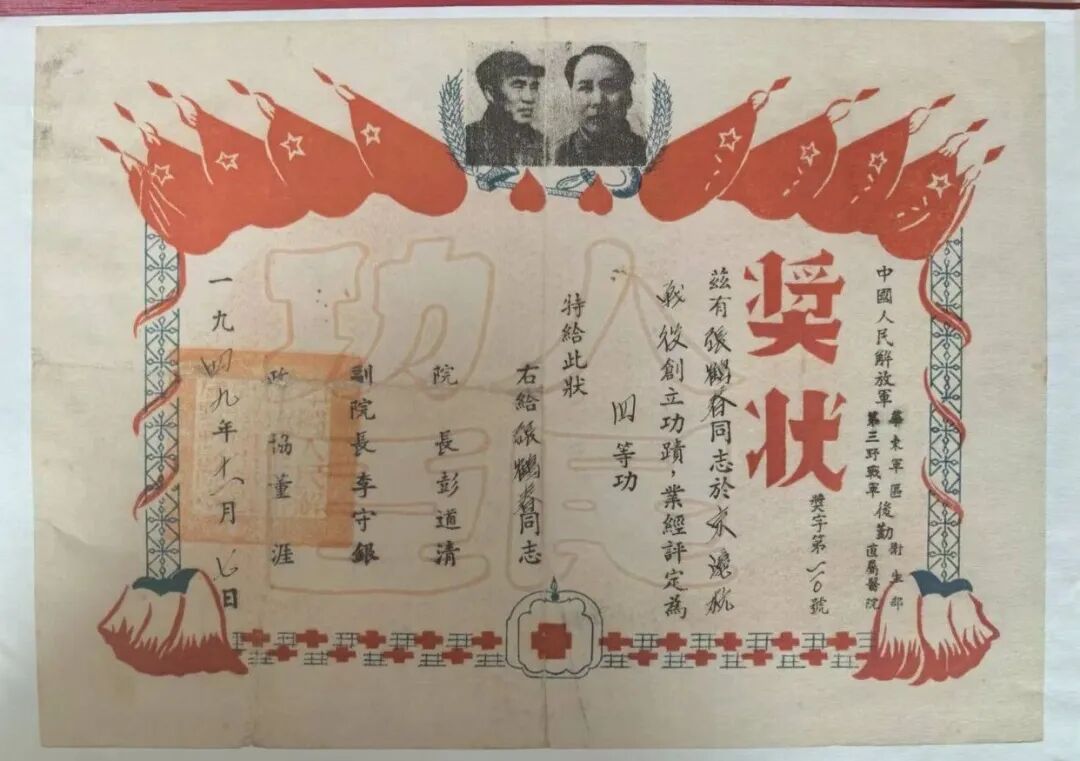 中國人民解放軍
華東軍區
第三野戰軍
後勤
衛生部
直屬醫院
獎狀
獎字第一一〇號
茲有張鶴春同志於京滬杭
戰役創立功蹟，業經評定為
四等功
特給此狀
右給張鶴春同志
院長彭道清
副院長李守銀
政協董涯
一九四九年十一月七日
人民
功臣